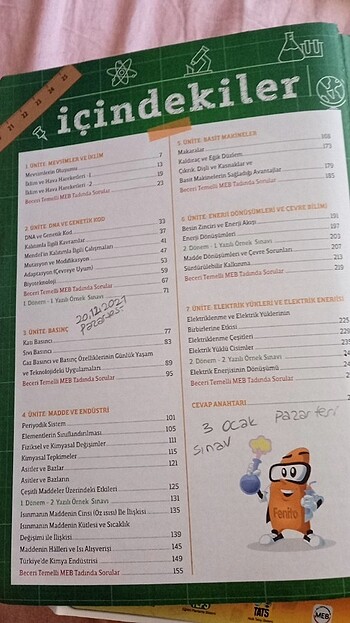 içindekiler
1. ÜNİTE: MEVSİMLER VE İKLİM 7
Mevsimlerin Oluşumu 13
İklim ve Hava Hareketleri - 1 19
İklim ve Hava Hareketleri - 2 23
Beceri Temelli MEB Tadında Sorular
2. ÜNİTE: DNA VE GENETİK KOD 33
DNA ve Genetik Kod 37
Kalıtımla İlgili Kavramlar 41
Mendel'in Kalıtımla İlgili Çalışmaları 47
Mutasyon ve Modifikasyon 53
Adaptasyon (Çevreye Uyum) 59
Biyoteknoloji 61
Beceri Temelli MEB Tadında Sorular 67
1. Dönem - 1. Yazılı Örnek Sınavı 71
20.12.2021
Pazartes-
3. ÜNİTE: BASINÇ
Katı Basıncı 77
Sıvı Basıncı 83
Gaz Basıncı ve Basınç Özelliklerinin Günlük Yaşam
ve Teknolojideki Uygulamaları 89
Beceri Temelli MEB Tadında Sorular 95
4. ÜNİTE: MADDE VE ENDÜSTRİ
Periyodik Sistem 101
Elementlerin Sınıflandırılması 105
Fiziksel ve Kimyasal Değişimler 111
Kimyasal Tepkimeler 115
Asitler ve Bazlar 121
Asitler ve Bazların
Çeşitli Maddeler Üzerindeki Etkileri 125
1. Dönem - 2. Yazılı Örnek Sınavı 131
Isınmanın Maddenin Cinsi (Öz ısısı) İle İlişkisi 135
Isınmanın Maddenin Kütlesi ve Sıcaklık
Değişimi ile İlişkisi 139
Maddenin Hâlleri ve Isı Alışverişi 145
Türkiye'de Kimya Endüstrisi 149
Beceri Temelli MEB Tadında Sorular 155
5. ÜNİTE: BASİT MAKİNELER
Makaralar
Kaldıraç ve Eğik Düzlem 173
Çıkrık, Dişli ve Kasnaklar ve
Basit Makinelerin Sağladığı Avantajlar
Beceri Temelli MEB Tadında Sorular 185
6. ÜNİTE: ENERJİ DÖNÜŞÜMLERİ VE ÇEVRE BİLİMİ
Besin Zinciri ve Enerji Akışı 191
Enerji Dönüşümleri 197
2. Dönem - 1. Yazılı Örnek Sınavı 203
Madde Dönüşümleri ve Çevre Sorunları 207
Sürdürülebilir Kalkınma 213
Beceri Temelli MEB Tadında Sorular 219
7. ÜNİTE: ELEKTRİK YÜKLERİ VE ELEKTRİK ENERJİSİ
Elektriklenme ve Elektrik Yüklerinin
Birbirlerine Etkisi 225
Elektriklenme Çeşitleri
Elektrik Yüklü Cisimler
2. Dönem - 2. Yazılı Örnek Sınavı
Elektrik Enerjisinin Dönüşümü
Beceri Temelli MEB Tadında Sorular
CEVAP ANAHTARI
3 Ocak Pazartesi
sınav
Fenito
TATS
MEB